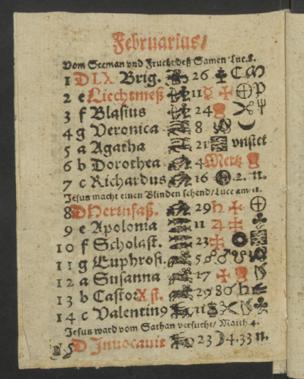 Februarius/
Vom Seeman vnd Frucht deß Samen Luc. 8.
1 D LX Brig. 26
2 e Liechtmeß 11
3 f Blasius 24
4 g Veronica 8
5 a Agatha 21 vnstet
6 b Dorothea 4
7 c Richardus 16 2. n.
Jesus macht einen Blinden sehend/ Luce am 18.
8 D Herrnfaß. 29
9 e Apolonia 11
10 f Scholast. 23
11 g Euphrosi. 5
12 a Susanna 17
13 b Castor 29
14 c Valentin9 11
Jesus ward vom Sathan versucht/ Matth 4.
D Inuocauit 23 4.33 n.